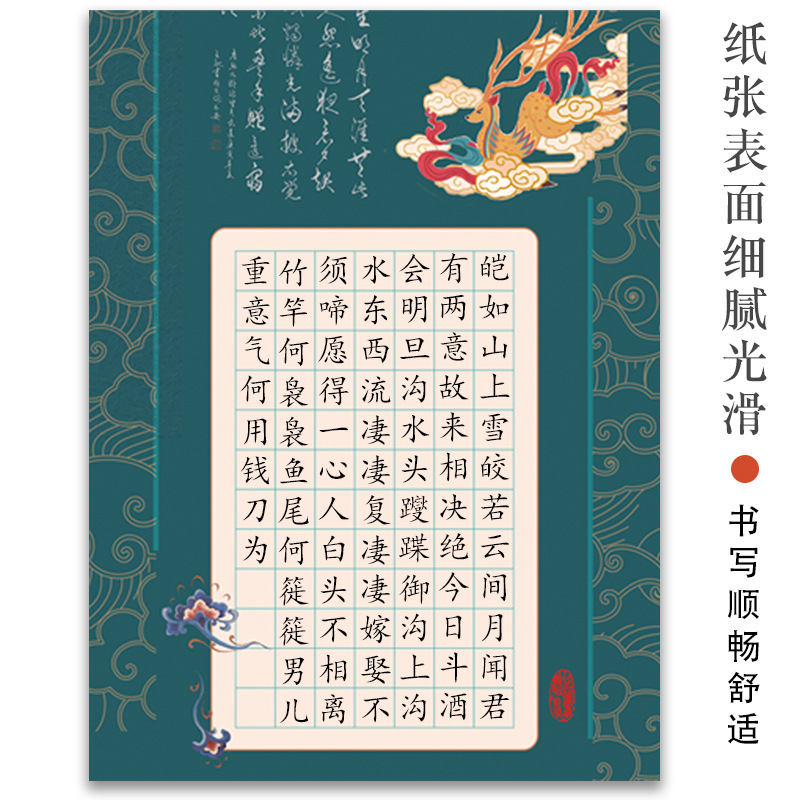 纸张表面细腻光滑
书写顺畅舒适
生明月天涯共此
人怨遥夜竟夕起
皑如山上雪皎若云间月闻君
有两意故来相决绝今日斗酒
会明旦沟水头躞蹀御沟上沟
水东西流凄凄复凄凄嫁娶不
须啼愿得一心人白头不相离
竹竿何袅袅鱼尾何簁簁男儿
重意气何用钱刀为